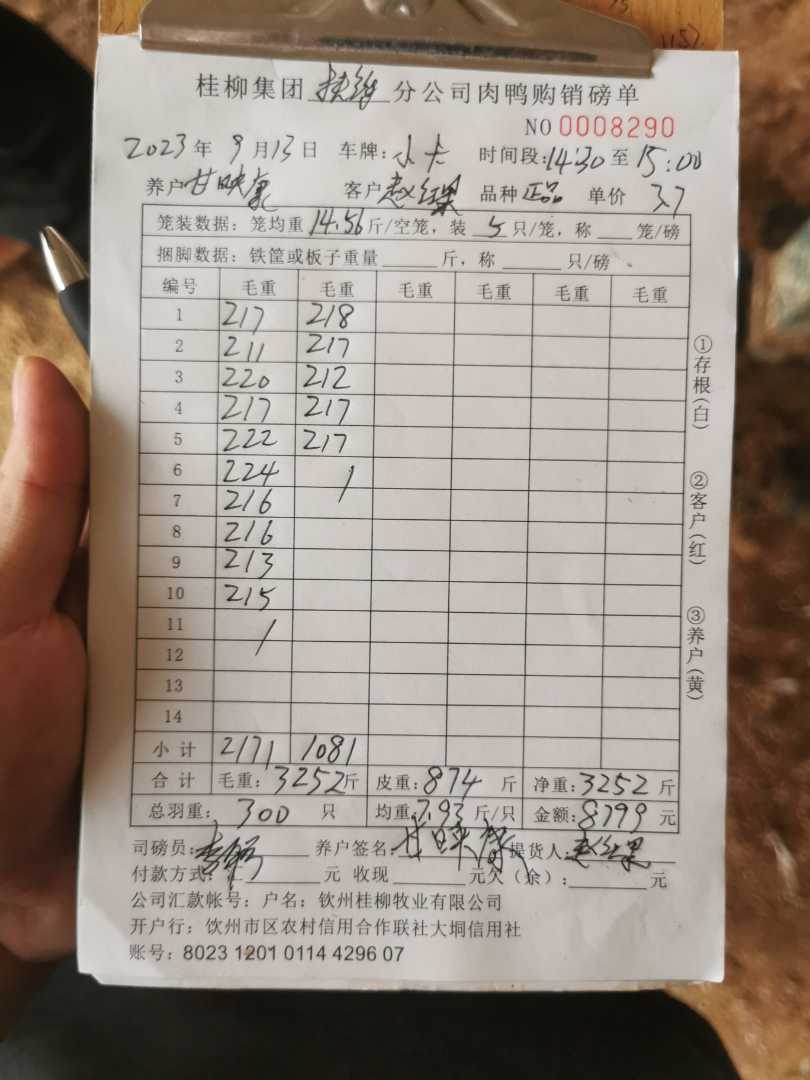 桂柳集团 扶绥 分公司肉鸭购销磅单
NO 0008290
2023 年 9 月 13 日 车牌: 小卡 时间段: 14:30 至 15:00
养户 甘映康 客户 赵红果 品种 正品 单价 3.7
笼装数据: 笼均重 14.56 斤/空笼, 装 5 只/笼, 称 笼/磅
捆脚数据: 铁筐或板子重量 斤, 称 只/磅
编号 毛重 毛重 毛重 毛重 毛重 毛重
1 217 218
2 211 217
3 220 212
4 217 217
5 222 217
6 224 /
7 216
8 216
9 213
10 215
11 /
12
13
14
小计 2171 1081
合计 毛重: 3252 斤 皮重: 874 斤 净重: 3252 斤
总羽重: 300 只 均重: 7.93 斤/只 金额: 8799 元
司磅员: 养户签名: 甘映康 提货人: 赵红果
付款方式: 汇 元 收现 元欠(余): 元
公司汇款帐号: 户名: 钦州桂柳牧业有限公司
开户行: 钦州市区农村信用合作联社大垌信用社
账号: 8023 1201 0114 4296 07
①存根(白)
②客户(红)
③养户(黄)